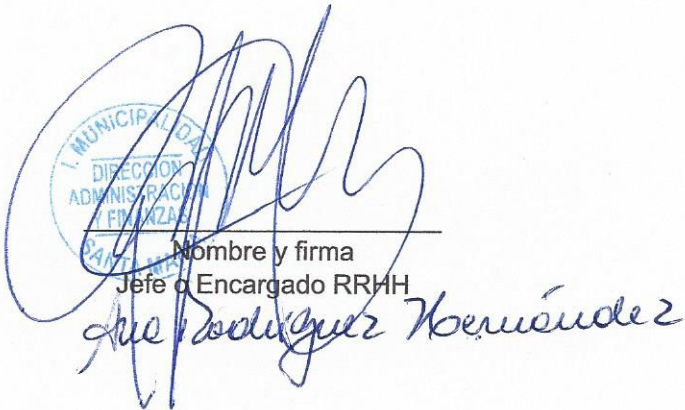 I. MUNICIPALIDAD
DIRECCION
ADMINISTRACION
Y FINANZAS
SANTA MARIA
Nombre y firma
Jefe o Encargado RRHH
Ana Rodríguez Hernández